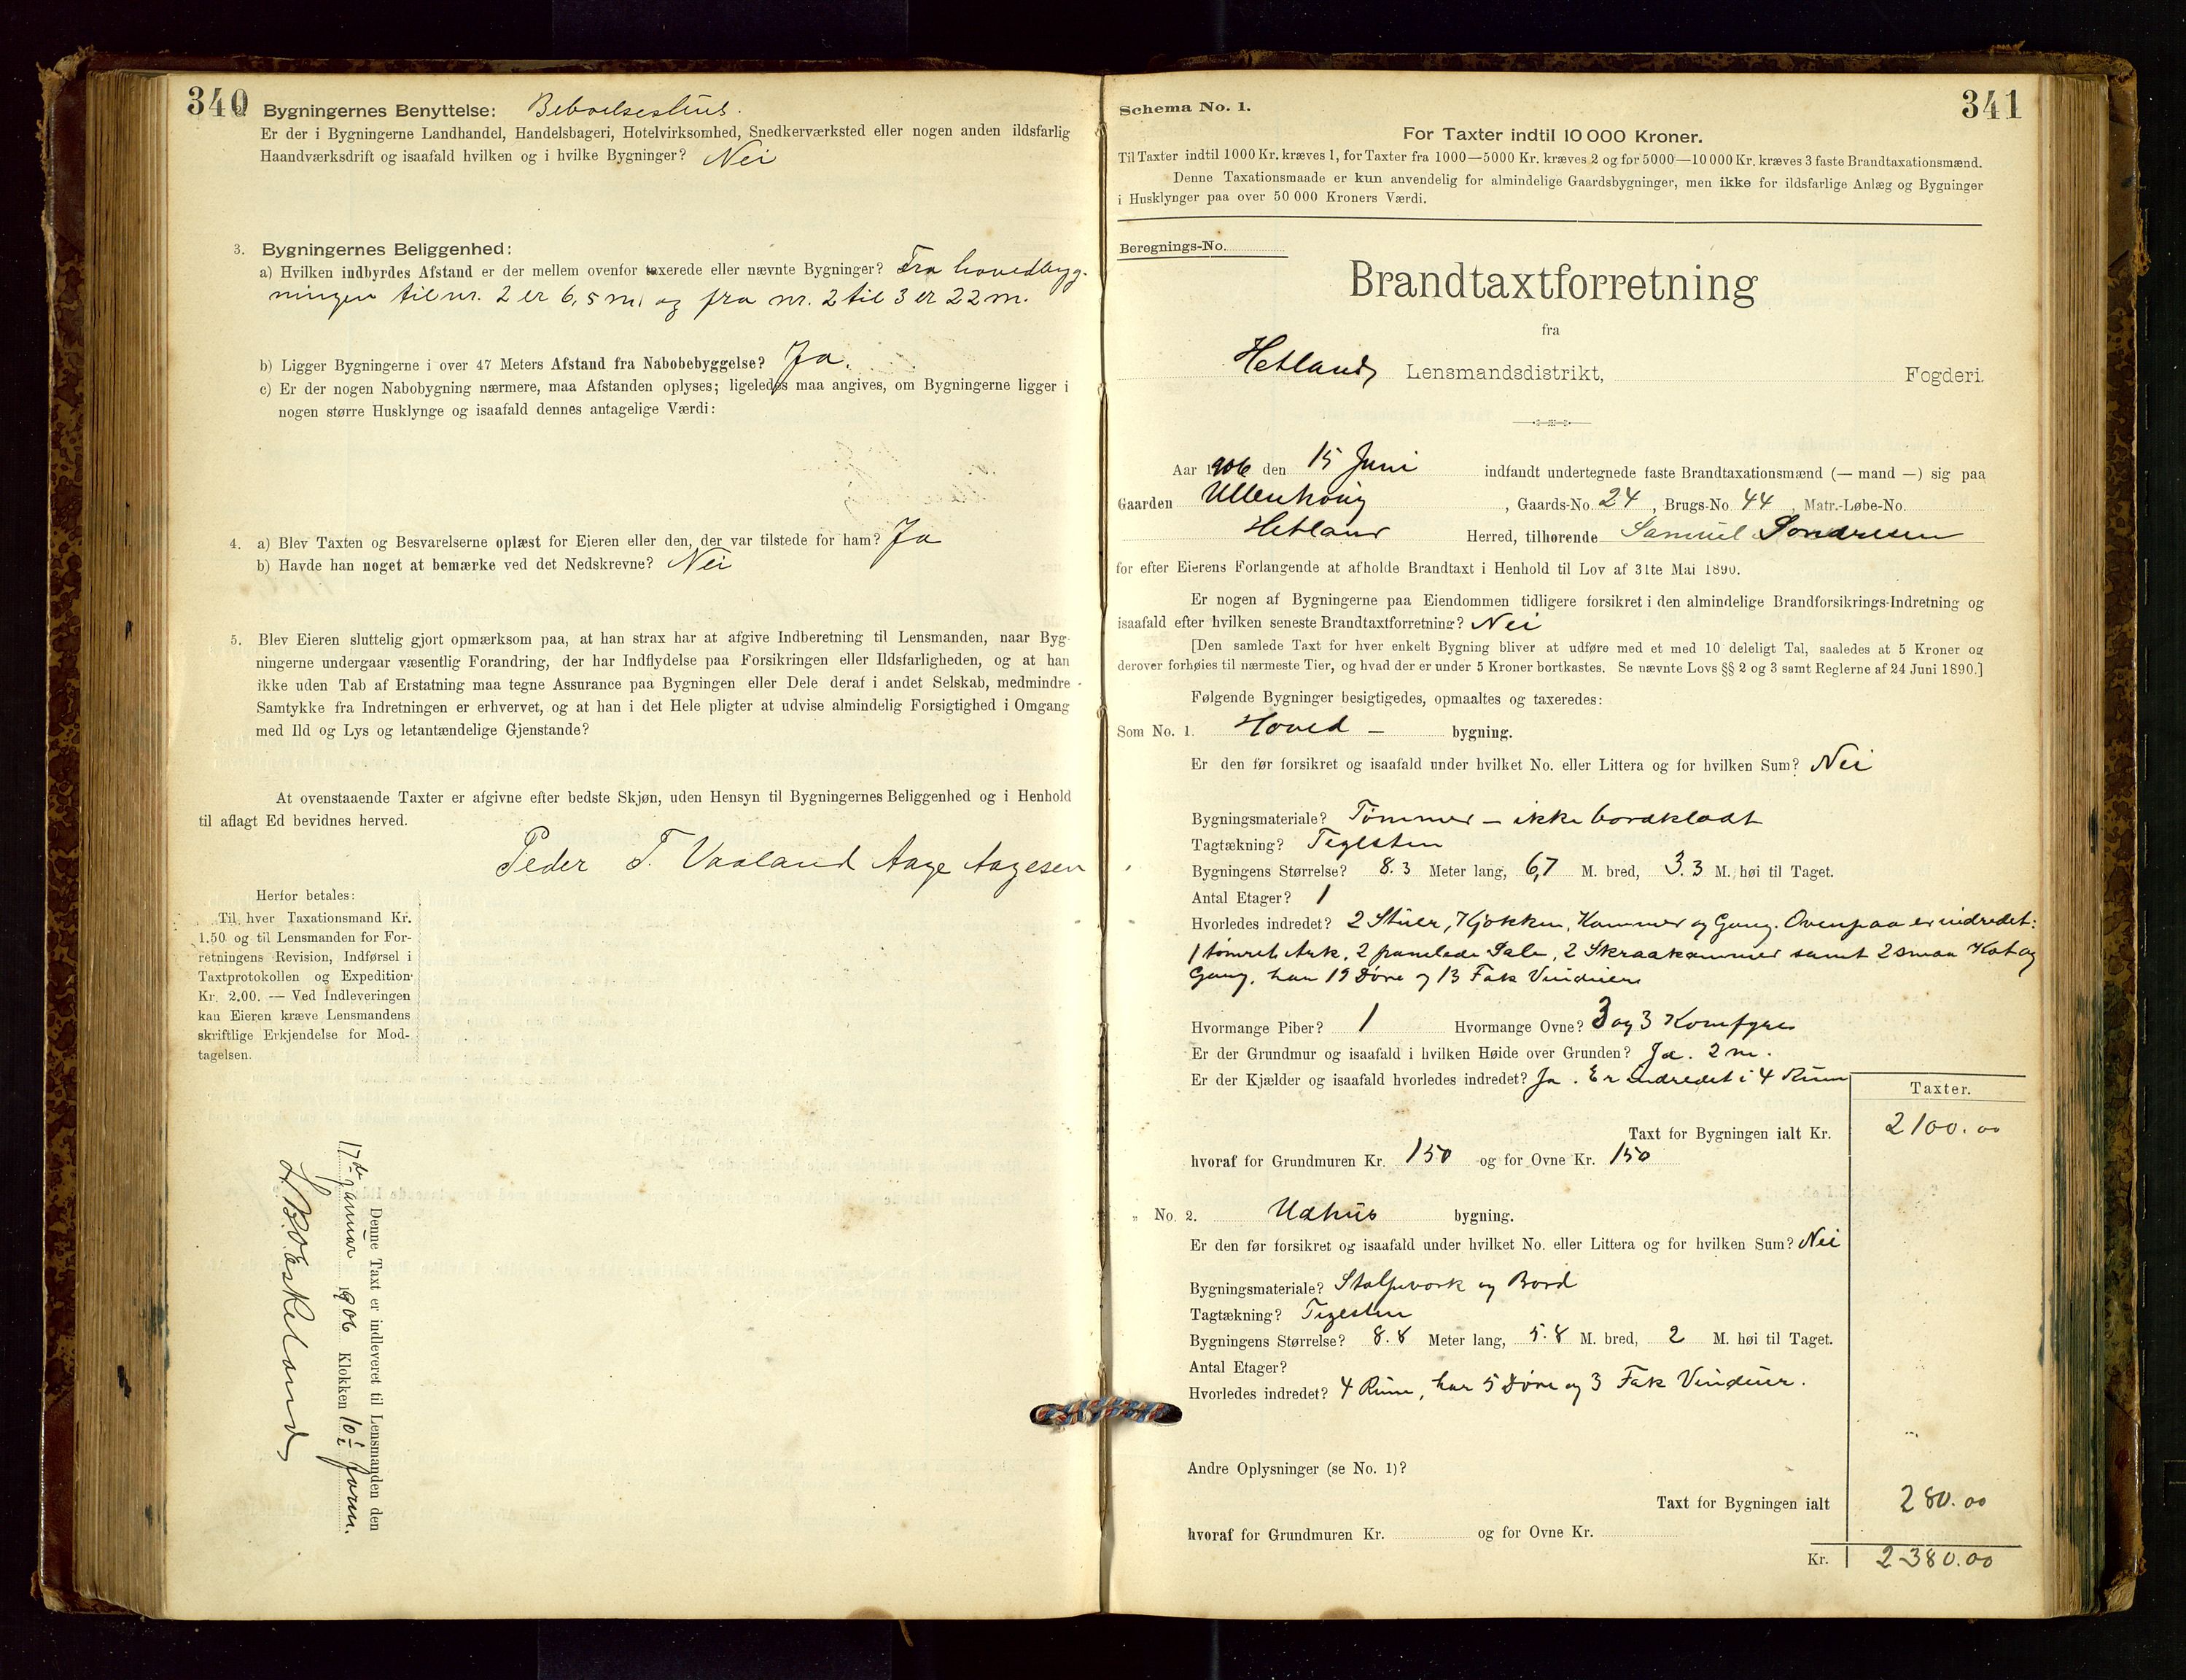 340
Bygningernes Benyttelse: Beboelseshus.
Er der i Bygningerne Landhandel, Handelsbageri, Hotelvirksomhed, Snedkerværksted eller nogen anden ildsfarlig
Haandværksdrift og isaafald hvilken og i hvilke Bygninger? Nei
3. Bygningernes Beliggenhed:
a) Hvilken indbyrdes Afstand er der mellem ovenfor taxerede eller nævnte Bygninger? Fra hovedbyg-
ningen til nr. 2 er 6,5 m, og fra nr. 2 til 3 er 22 m.
b) Ligger Bygningerne i over 47 Meters Afstand fra Nabobebyggelse? Ja.
c) Er der nogen Nabobygning nærmere, maa Afstanden oplyses; ligeledes maa angives, om Bygningerne ligger i
nogen større Husklynge og isaafald dennes antagelige Værdi:
4. a) Blev Taxten og Besvarelserne oplæst for Eieren eller den, der var tilstede for ham? Ja
b) Havde han noget at bemærke ved det Nedskrevne? Nei
5. Blev Eieren sluttelig gjort opmærksom paa, at han strax har at afgive Indberetning til Lensmanden, naar Byg-
ningerne undergaar væsentlig Forandring, der har Indflydelse paa Forsikringen eller Ildsfarligheden, og at han
ikke uden Tab af Erstatning maa tegne Assurance paa Bygningen eller Dele deraf i andet Selskab, medmindre
Samtykke fra Indretningen er erhvervet, og at han i det Hele pligter at udvise almindelig Forsigtighed i Omgang
med Ild og Lys og letantændelige Gjenstande?
At ovenstaaende Taxter er afgivne efter bedste Skjøn, uden Hensyn til Bygningernes Beliggenhed og i Henhold
til aflagt Ed bevidnes herved.
Peder T. Vaaland Aage Aagesen
Herfor betales:
Til hver Taxationsmand Kr.
1.50 og til Lensmanden for For-
retningens Revision, Indførsel i
Taxtprotokollen og Expedition
Kr. 2.00. — Ved Indleveringen
kan Eieren kræve Lensmandens
skriftlige Erkjendelse for Mod-
tagelsen.
Denne Taxt er indleveret til Lensmanden den
17de januar 1906 Klokken 10 1/2 form.
Eskeland
341
Schema No. 1.
For Taxter indtil 10 000 Kroner.
Til Taxter indtil 1000 Kr. kræves 1, for Taxter fra 1000—5000 Kr. kræves 2 og for 5000—10 000 Kr. kræves 3 faste Brandtaxationsmænd.
Denne Taxationsmaade er kun anvendelig for almindelige Gaardsbygninger, men ikke for ildsfarlige Anlæg og Bygninger
i Husklynger paa over 50 000 Kroners Værdi.
Beregnings-No.
Brandtaxtforretning
fra
Hetlands Lensmandsdistrikt, Fogderi.
Aar 1906 den 15 Juni indfandt undertegnede faste Brandtaxationsmænd (— mand —) sig paa
Gaarden Ullenhoug, Gaards-No. 24, Brugs-No. 44, Matr.-Løbe-No.
Hetland Herred, tilhørende Samuel Sondresen
for efter Eierens Forlangende at afholde Brandtaxt i Henhold til Lov af 31te Mai 1890.
Er nogen af Bygningerne paa Eiendommen tidligere forsikret i den almindelige Brandforsikrings-Indretning og
isaafald efter hvilken seneste Brandtaxtforretning? Nei
[Den samlede Taxt for hver enkelt Bygning bliver at udføre med et med 10 deleligt Tal, saaledes at 5 Kroner og
derover forhøies til nærmeste Tier, og hvad der er under 5 Kroner bortkastes. Se nævnte Lovs §§ 2 og 3 samt Reglerne af 24 Juni 1890.]
Følgende Bygninger besigtigedes, opmaaltes og taxeredes:
Som No. 1. Hoved – bygning.
Er den før forsikret og isaafald under hvilket No. eller Littera og for hvilken Sum? Nei
Bygningsmateriale? Tømmer – ikke bordklædt
Tagtækning? Teglsten
Bygningens Størrelse? 8.3 Meter lang, 6,7 M. bred, 3.3 M. høi til Taget.
Antal Etager? 1
Hvorledes indredet? 2 Stuer, Kjøkken, Kammer og Gang. Ovenpaa er indredet:
1 tømret Ark, 2 panelede Sale, 2 Skraakammer samt 2 smaa Kot og
Gang, har 19 Døre og 13 Fak Vinduer
Hvormange Piber? 1 Hvormange Ovne? 3 og 3 Komfyre
Er der Grundmur og isaafald i hvilken Høide over Grunden? Ja. 2 m.
Er der Kjælder og isaafald hvorledes indredet? Ja. Er indredet i 4 Rum
Taxter.
Taxt for Bygningen ialt Kr. 2100.00
hvoraf for Grundmuren Kr. 150 og for Ovne Kr. 150
" No. 2. Udhus bygning.
Er den før forsikret og isaafald under hvilket No. eller Littera og for hvilken Sum? Nei
Bygningsmateriale? Stolpeverk og Bord
Tagtækning? Teglsten
Bygningens Størrelse? 8.8 Meter lang, 5.8 M. bred, 2 M. høi til Taget.
Antal Etager?
Hvorledes indredet? 4 Rum, har 5 Døre og 3 Fak Vinduer.
Andre Oplysninger (se No. 1)?
Taxt for Bygningen ialt 280.00
hvoraf for Grundmuren Kr. og for Ovne Kr.
Kr. 2380.00